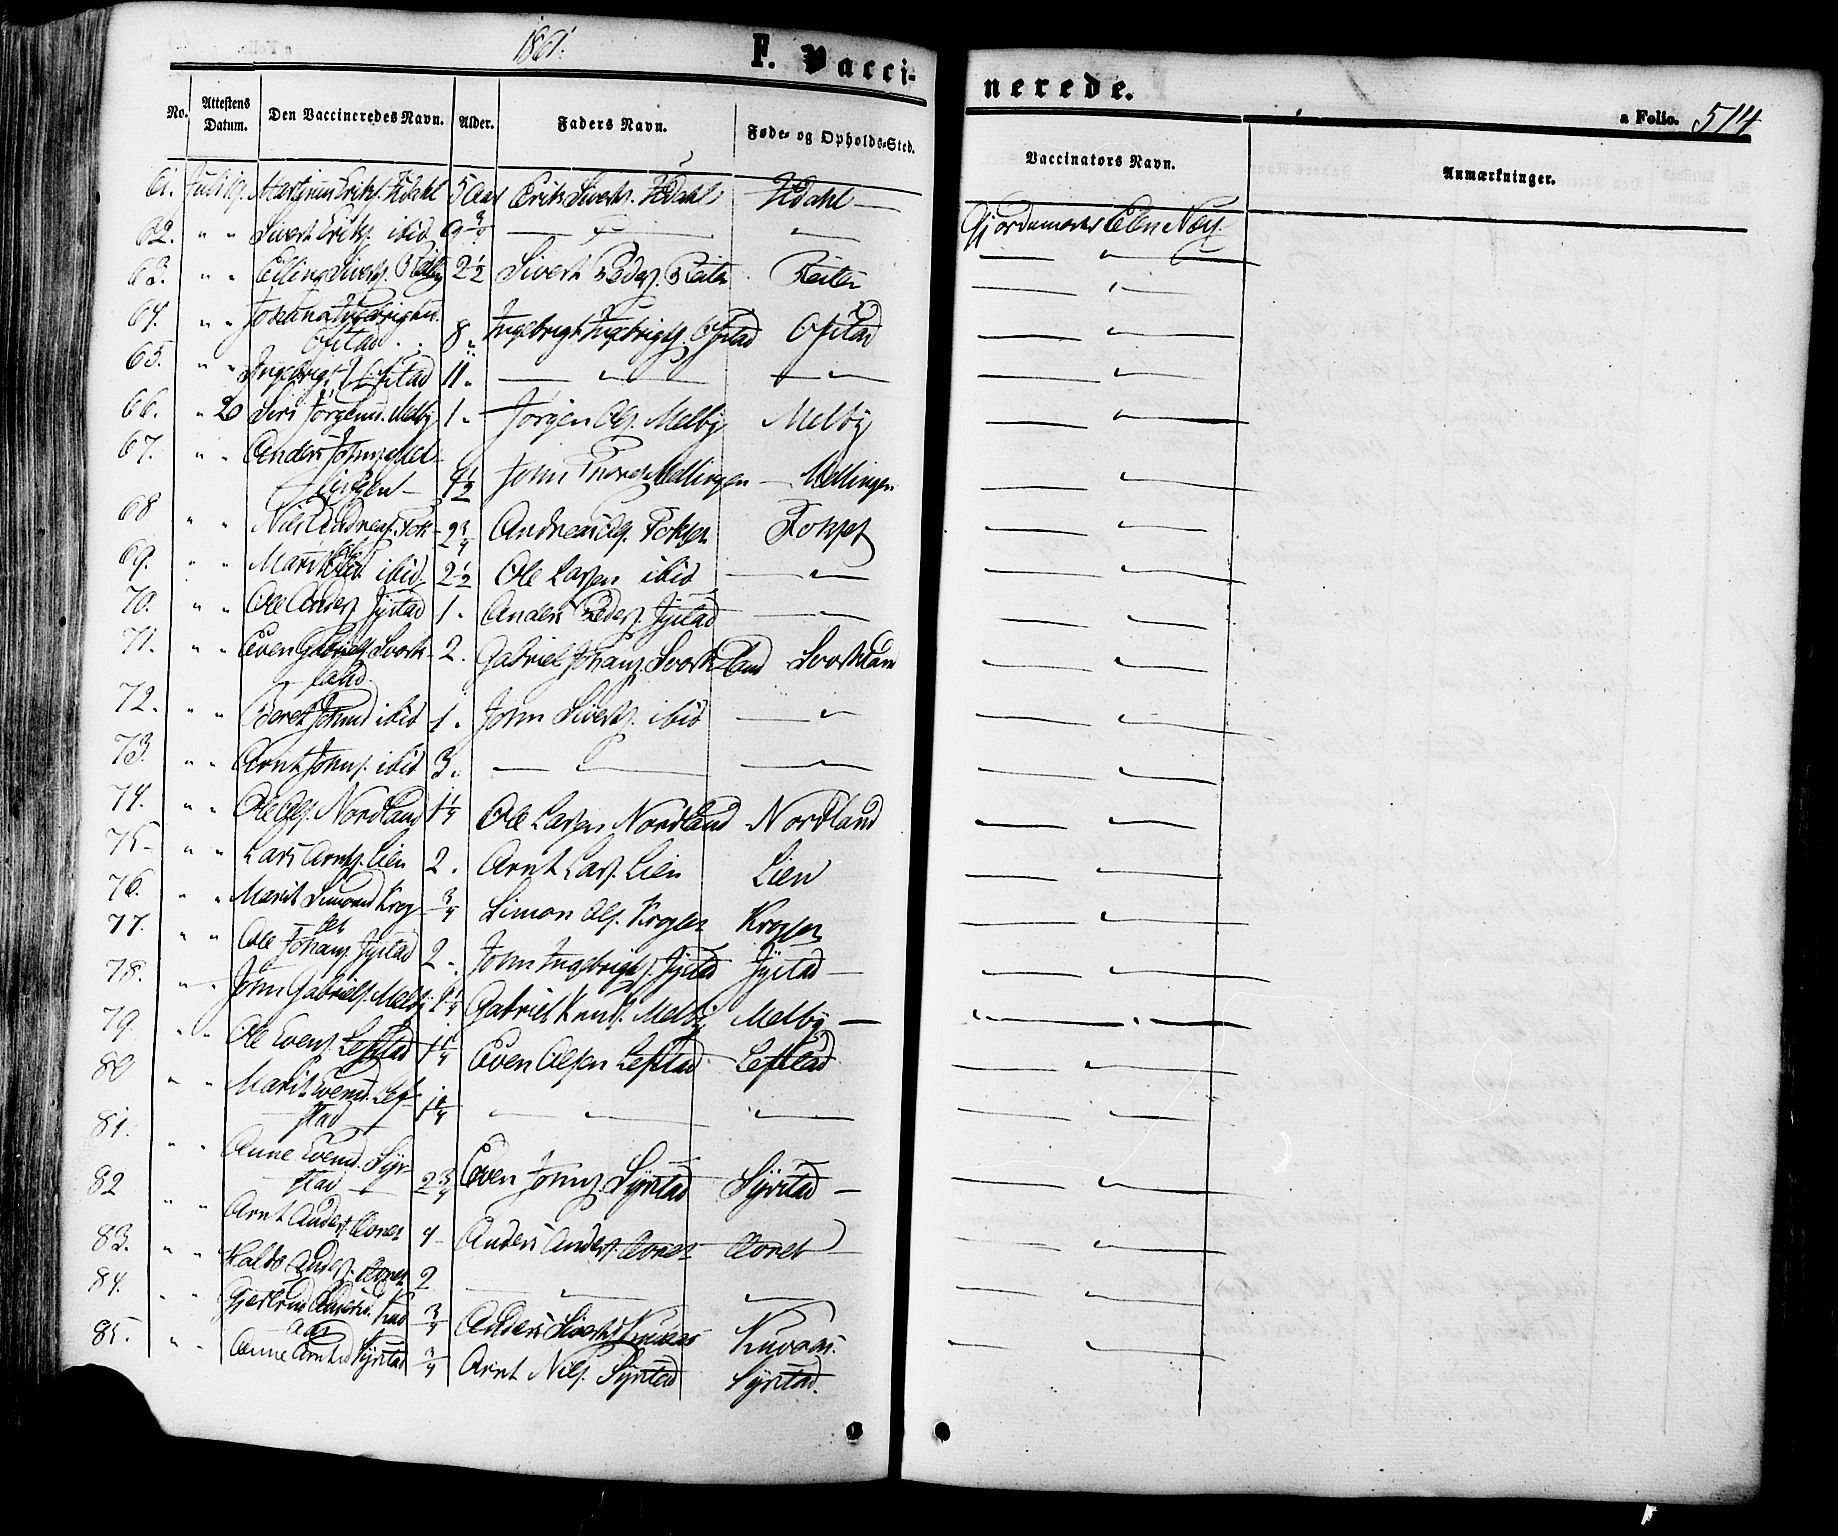 1861.
F. Vacci-
nerede.
a Folio. 514
No. Attestens Datum. Den Vaccineredes Navn. Alder. Faders Navn. Føde- og Opholds-Sted. Vaccinators Navn. Anmærkninger.
61. Juli 19. Martinus Eriks. 5 Aar Eriks Siverts. Gjordemoder Elen Næss.
62. " " Sivert Eriks. ibid — " — — " — — " —
63. " " Elling Siverts. Reiten 2 1/2 Sivert Peders. Reiten Reiten — " —
64. " " Johanna Ingebrigtsd.
Ofstad 8 " Ingebrigt Ingebrigts. Ofstad Ofstad — " —
65. " " Ingebrigt I. Ofstad 11 " — " — — " — — " —
66. " 20 Siri Jörgensd. Melby 1 " Jörgen Ols. Melby Melby — " —
67. " " Anders Johns. Mel-
lingen 4 1/2 John Thores. Mellingen — Mellingen — " —
68 " " Nils Andreas. Fok- 2 3/4 Andreas Ols. Fokset Fokset — " —
69. " " Marit Olsd. ibid 2 1/2 Ole Larsen ibid — " — — " —
70. " " Ole Anders. Jystad 1 " Anders Peders. Jystad — " — — " —
71. " " Even Gabriels. Svork-
land 2. Gabriel Johans. Svorkland Svorkland — " —
72. " " Beret Johnsd ibid 1. John Siverts. ibid — " — — " —
73. " " Arnt Johns. ibid 3. — " — — " — — " —
74. " " Ole Ols. Nordland 1 1/4 Ole Larsen Nordland Nordland — " —
75 " " Lars Arnts. Lien 2. Arnt Lars. Lien Lien — " —
76. " " Marit Simonsd Krog-
set 3/4 Simon Ols. Krogset Krogset — " —
77. " " Ole Johans. Jystad 2 " John Ingebrigts. Jystad Jystad — — " —
78. " " John Gabriels. Melby 1 1/4 Gabriel Knuds. Melby Melby — — " —
79. " " Ole Evens. Lefstad 1 1/4 Even Olsen Lefstad Lefstad — " —
80 " " Marit Evensd. Lef-
stad 1 1/4 — " — — " — — " —
81. " " Anne Evensd. Syr-
stad 2 3/4 Even Johns. Syrstad Syrstad — — " —
82 " " Arnt Anders. Aonet 4 Anders Anders. Aonet Aonet — — " —
83. " " Anders. Aonet 2 — " — — " — — " —
84. " " Gjertrud Andersd. Kuv-
aas 3/4 Anders Siverts. Kuvaas Kuvaas. — " —
85. " " Anne Arntsd Syrstad 3/4 Arnt Nils. Syrstad Syrstad.